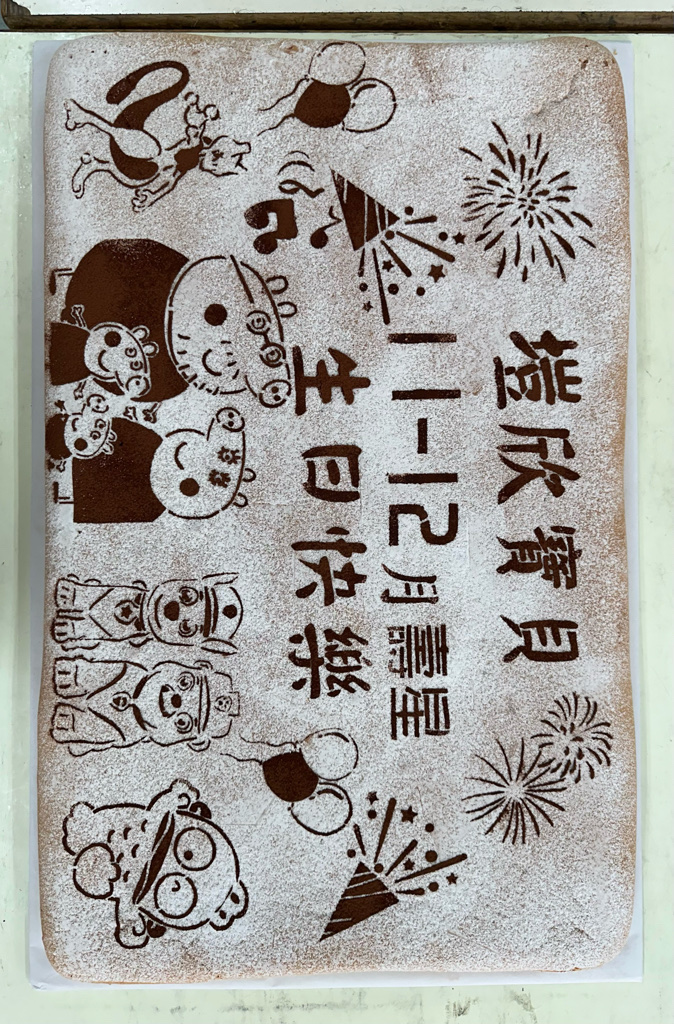 愷欣寶貝
11-12月壽星
生日快樂